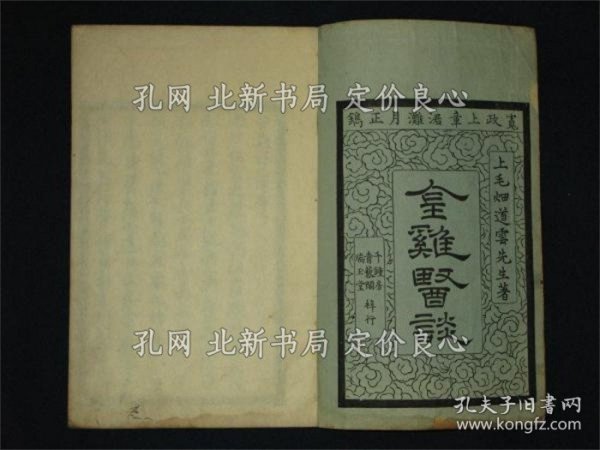 寛政上章涒灘月正鐫
上毛畑道雲先生著
金雞醫談
千鍾房
青藜閣
梓行
孔网 北新书局 定价良心
孔网 北新书局 定价良心
孔网 北新书局 定价良心
孔夫子旧书网
www.kongfz.com